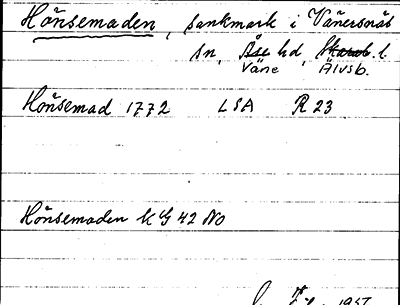 Hönsemaden, sankmark i Vänersnäs
sn, Åse hd, Skarab. l.
Väne Älvsb.
Hönsemad 1772 LSA R 23
Hönsemaden KG 42 NO
1957